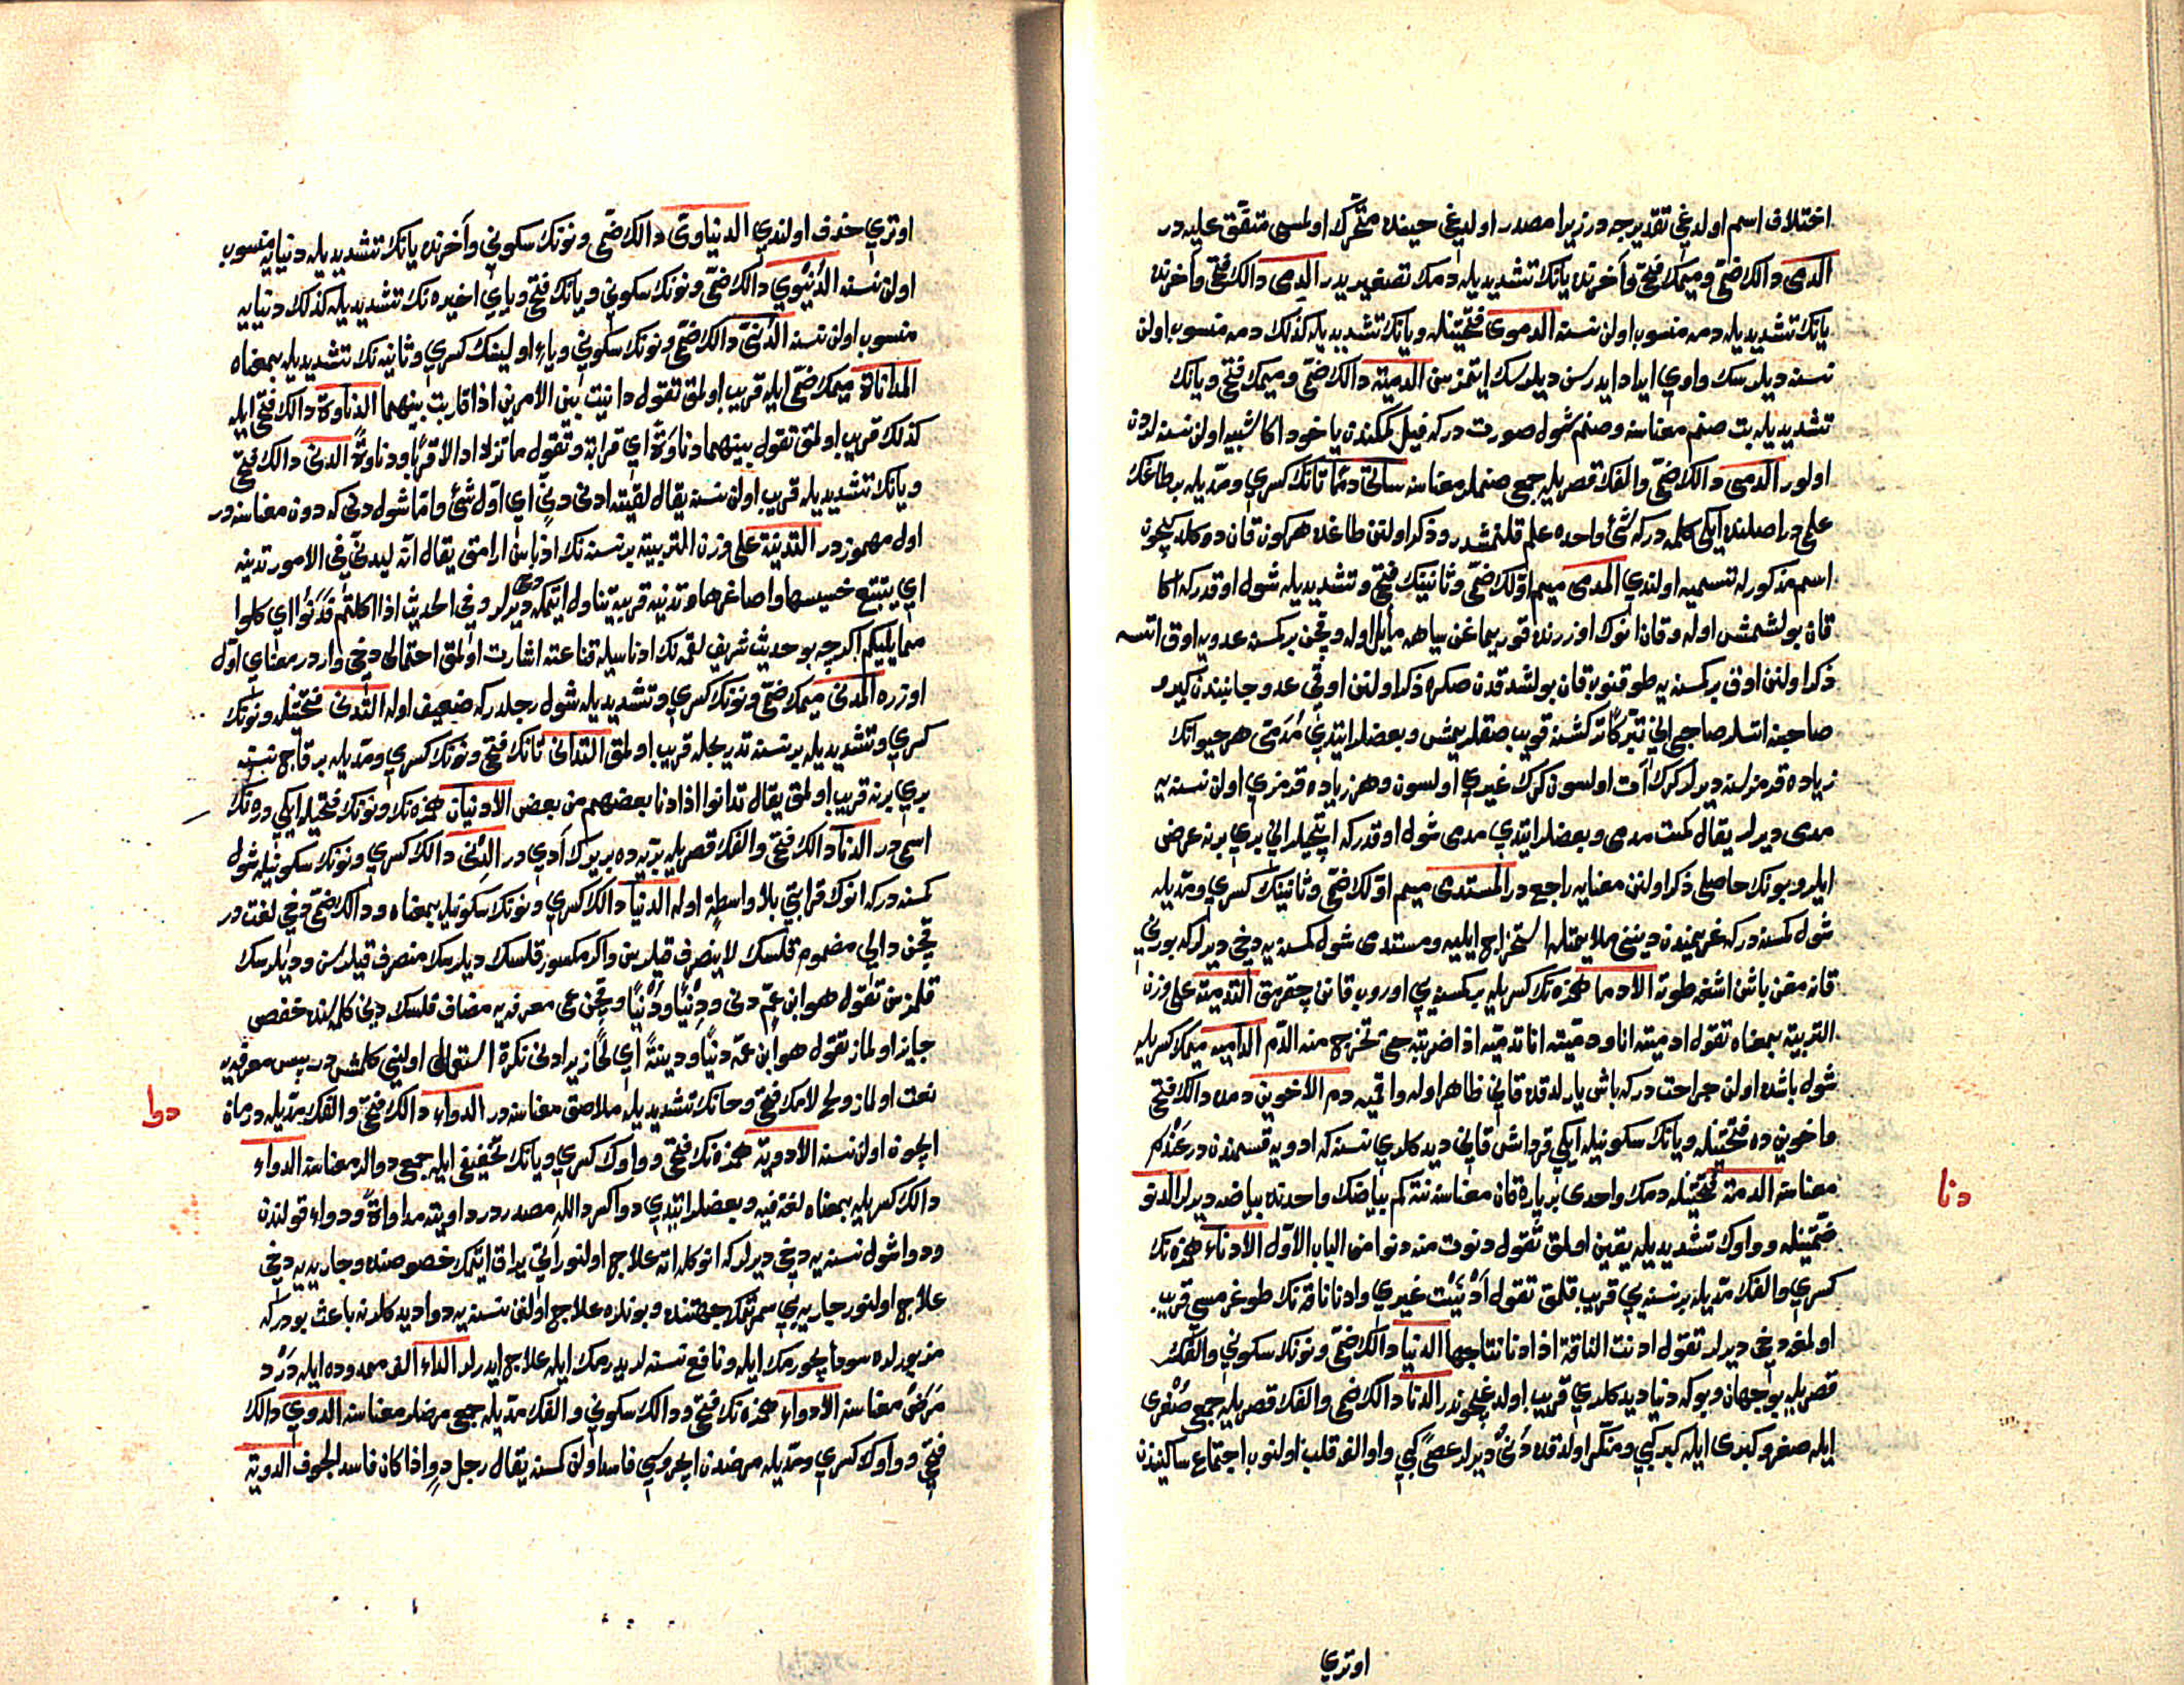 اختلاف اسم اولدغى تقديرجه در زيرا مصدر اولديغى حينده متحرك اولمسى متفق عليه در
الدمى دالك ضمى وميمك فتحى وآخرنده يانك تشديديله دمك تصغيريدر الدمى دالك فتحى وآخرنده
يانك تشديديله دمه منسوب اولن نسنه الدموى فتحتينله ويانك تشديديله كذلك دمه منسوب اولن
نسنه ديلرسك واوى ايراد ايدرسن ديلرسك ايتمزسن الدمية دالك ضمى وميمك فتحى ويانك
تشديديله بت صنم معناسنه وصنم شول صورت دركه فيل كمكندن ياخود اكا شبيه اولن نسنه لردن
اولور الدمى دالك ضمى والفك قصريله جمعى صنملر معناسنه ساتى دما تانك كسرى ومديله بر طاغك
علمى در اصلنده ايكى كلمه دركه شئ واحده علم قلنمشدر وذكر اولنن طاغده هركون قان دوكلديكچون
اسم مذكورله تسميه اولندى المدمى ميم اولك ضمى وثانينك فتحى وتشديديله شول اوقدركه اكا
قان بولشمش اوله وقان انوك اوزرنده قوريماغن سياهه مايل اوله وقچن بر كمسنه عدويه اوق اتسه
ذكر اولنن اوق بر كمسنه يه طوقنوب قان بولشدقدن صكره ذكر اولنن اوقى عدو جانبندن كيرو
صاحبنه اتسلر صاحبى انى تبركا تركشنه قويب صقلريمش وبعضلر ايتدى مدمى هر حيوانك
زياده قرمزلسنه ديرلر كرك آت اولسون كرك غيرى اولسون وهر زياده قرمزى اولن نسنه يه
مدمى ديرلر يقال كميت مدمى وبعضلر ايتدى مدمى شول اوقدركه اتيجيلر انى برى برنه عرض
ايلر وبونك حاصلى ذكر اولنن معنايه راجع در المستدمى ميم اولك ضمى وثانينك كسرى ومديله
شول كمسنه دركه غريمندن ديننى ملايمتله استخراج ايليه ومستدمى شول كمسنه يه دخى ديرلركه بورنى
قانه مغن باشن اشغه طوته الادما همزه نك كسريله بر كمسنه يى اوروب قانن چقرمق التدمية على وزن
التربية بمعناه تقول ادميته انا ودميته انا تدمية اذا ضربته حتى تخرج منه الدم الداميه ميمك كسريله
شول باشده اولن جراحت دركه باش يارلدقده قانى ظاهر اوله واقميه دم الاخوين دمده دالك فتحى
واخوين ده فتحتينله ويانك سكونيله ايكى قرداش قانى ديدكلرى نسنه كه ادويه قسمندن در عندم
معناسنه الدمة فتحتينله دمك واحدى بر پاره قان معناسنه نته كم بياضك واحدنه بياضه ديرلر الدنو
ضمتينله وواوك تشديديله يقين اولمق تقول دنوت منه دنوا من الباب الاول الادناء همزه نك
كسرى والفك مديله بر نسنه يى قريب قلمق تقول ادنيت غيرى وادنا ناقه نك طوغرمسى قريب
اولمغه دخى ديرلر تقول ادنت الناقة اذا دنا نتاجها الدنيا دالك ضمى ونونك سكونى والفك
قصريله بو جهان وبوكه دنيا ديدكلرى قريب اولديغيچوندر الدنا دالك ضمى والفك قصريله جمعى صغرى
ايله صغر وكبرى ايله كبر كبى ومنكر اولدقده دنى ديرلر عصى كبى واو الفه قلب اولنوب اجتماع ساكنيندن
اوترى
دنا
اوترى حذف اولندى الدنياوى دالك ضمى ونونك سكونى وآخرنده يانك تشديديله دنيايه منسوب
اولن نسنه الدنيوى دالك ضمى ونونك سكونى ويانك فتحى وياى اخيره نك تشديديله كذلك دنيايه
منسوب اولن نسنه الدنيى دالك ضمى ونونك سكونى وياء اولينك كسرى وثانيه نك تشديديله بمعناه
المداناة ميمك ضمى ايله قريب اولمق تقول دانيت بين الامرين اذا قاربت بينهما الدناوة دالك فتحى ايله
كذلك قريب اولمق تقول بينهما دناوة اى قرابة وتقول ما تزداد الا قربا ودناوة الدنى دالك فتحى
ويانك تشديديله قريب اولن نسنه يقال لقيته ادنى دنى اى اول شئ واما شول دنى كه دون معناسنه در
اول مهموزدر التدنية على وزن التربية بر نسنه نك اذناسن ارامق يقال انه ليدنى فى الامور تدنية
اى يتتبع خسيسها واصاغرها وتدنيه قريبه تناول ايتمكه دخى ديرلر وفى الحديث اذا اكلتم فدنوا اى كلوا
مما يليكم اكرچه بو حديث شريف لقمه نك ادناسيله قناعته اشارت اولمق احتمالى دخى واردر معناى اول
اوزره المدنى ميمك ضمى ونونك كسرى وتشديديله شول رجلدركه ضعيف اوله التدنى فتحتينله ونونك
كسرى وتشديديله بر نسنه تدريجله قريب اولمق التدانى تانك فتحى ونونك كسرى ومديله بر قاچ نسنه
برى برنه قريب اولمق يقال تدانوا اذا دنا بعضهم من بعض الادنيان همزه نك ونونك فتحيله ايكى دره نك
اسمى در الدنا دالك فتحى والفك قصريله بريه ده بر يرك آدى در الدنى دالك كسرى ونونك سكونيله شول
كمسنه دركه انوك قرابتى بلا واسطة اوله الدنيا دالك كسرى ونونك سكونيله بمعناه ودالك ضمى دخى لغت در
قچن دالى مضموم قلسك لا ينصرف قيلرسن واكر مكسور قلسك ديلرسك منصرف قيلرسن وديلرسك
قلمزسن تقول هو ابن عم دنى ودنيا ودنيا وقچن عمى معرفه يه مضاف قلسك دنى كلمه سنده خفض
جايز اولماز تقول هو ابن عمه دنيا ودينة اى لحا زيرا دنى نكرة استعمال اولنى كلمش در پس معرفه يه
نعت اولماز ولح لامك فتحى وحانك تشديديله ملاصق معناسنه در الدواء دالك فتحى والفك مديله درمان
ايچون اولن نسنه الادوية همزه نك فتحى وواوك كسرى ويانك تخفيفى ايله جمعى دوالر معناسنه الدواء
دالك كسريله بمعناه لغة فيه وبعضلر ايتدى دواكس دالله مصدردر داويته مداواة ودواء قولندن
ودوا شول نسنه يه دخى ديرلركه انوكله اته علاج اولنور آتى يراق ايتمك خصوصنده وجاريه يه دخى
علاج اولنور جاريه يى سمرتمك جهتنده وبونلره علاج اولنن نسنه يه دوا ديدكلرنه باعث بودركه
مزبورلره سود ايچورمك ايله ونافع نسنه لر يدرمك ايله علاج ايدرلر الداء الف ممدوده ايله درد
مرض معناسنه الادواء همزه نك فتحى ودالك سكونى والفك مديله جمعى مرضلر معناسنه الدوى دالك
فتحى وواوك كسرى ومديله مرضدن ايچروسى فاسد اولن كمسنه يقال رجل دو اذا كان فاسد الجوف الدوية
دوا